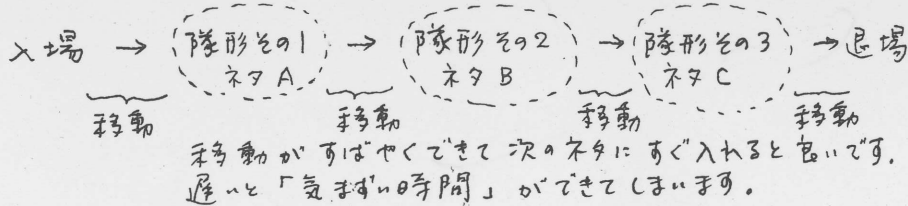 入場 → 隊形その1 → 隊形その2 → 隊形その3 → 退場
ネタA ネタB ネタC
移動 移動 移動 移動
移動がすばやくできて次のネタにすぐ入れると良いです.
遅いと「気まずい時間」ができてしまいます。